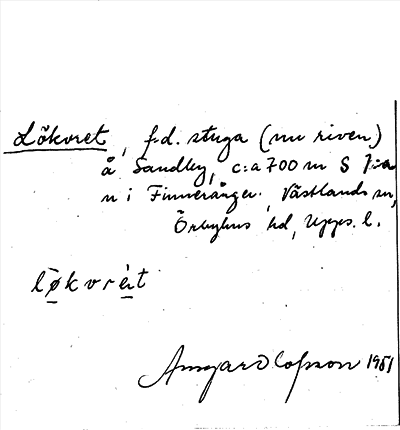 Lökvret, f.d. stuga (nu riven)
å Sandby, c:a 700 m S
n i Finnerånger. Västlands sn,
Örbyhus hd, Upps. l.
løkvrèt
Ansgard Olsson 1951